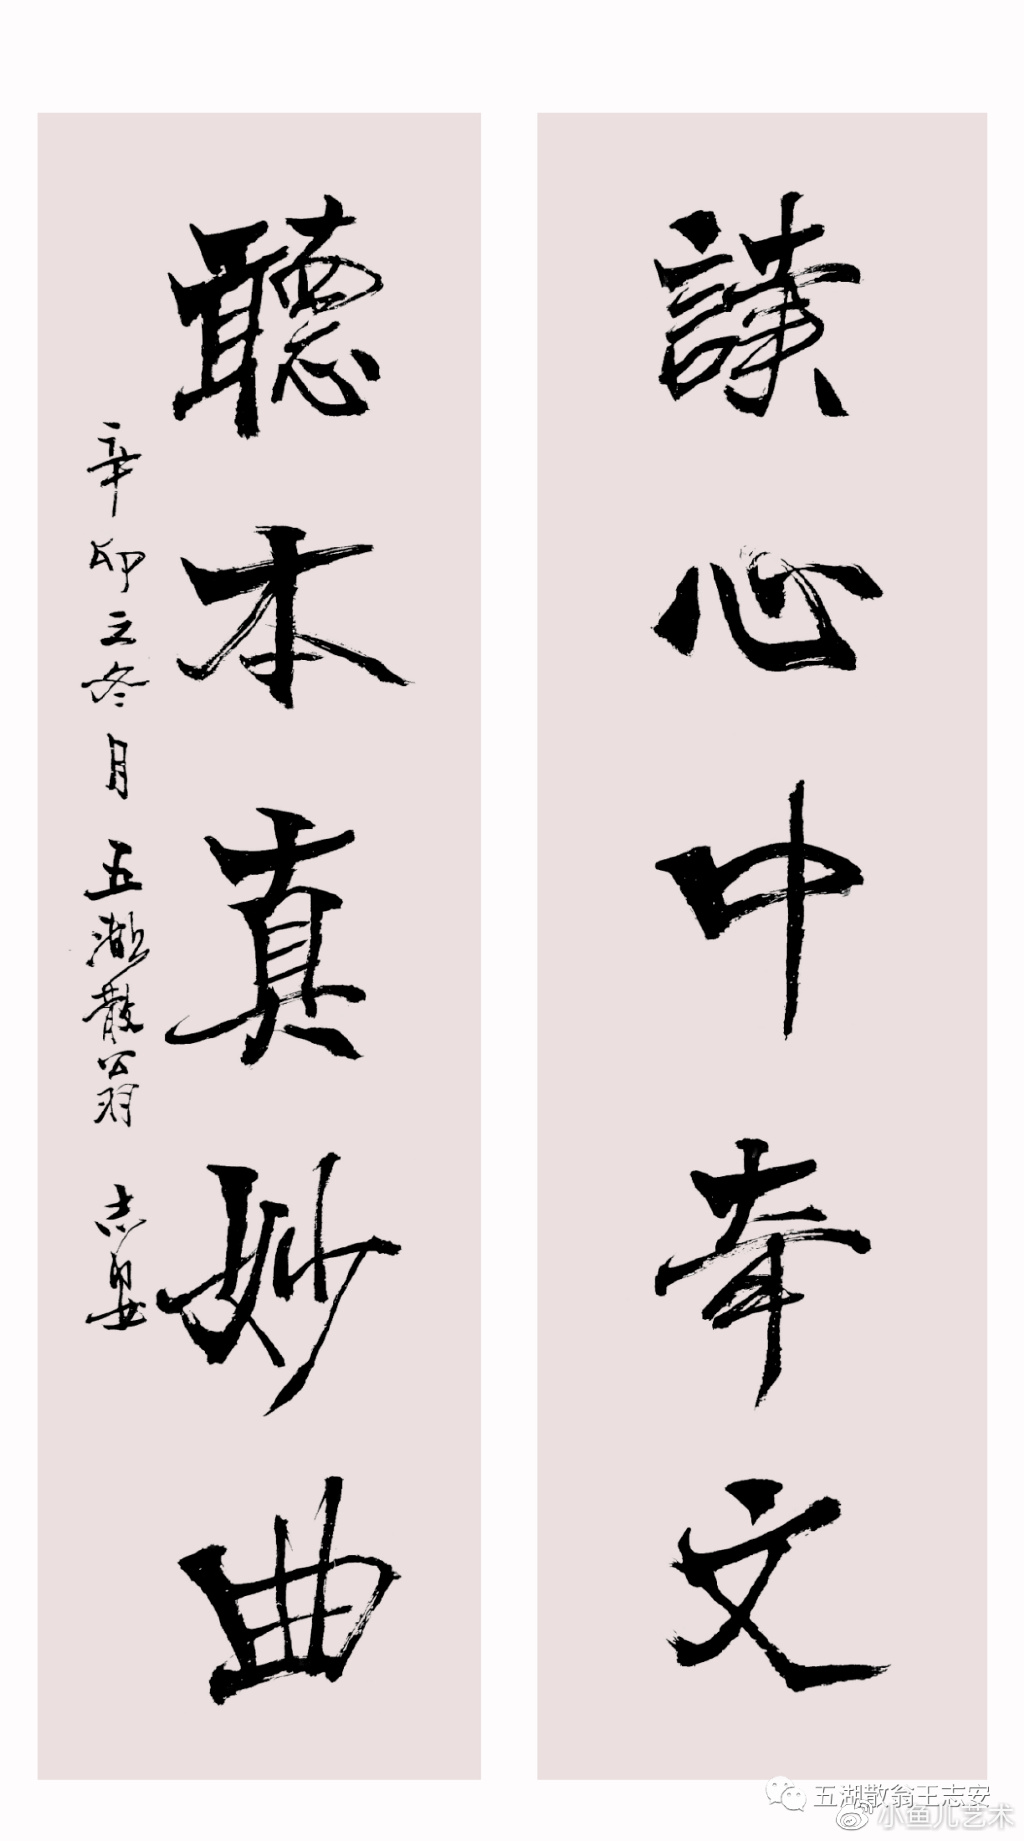 讀心中奉文
聽本真妙曲
辛卯立冬月五湖散翁 志安
五湖散翁王志安
小鱼儿艺术